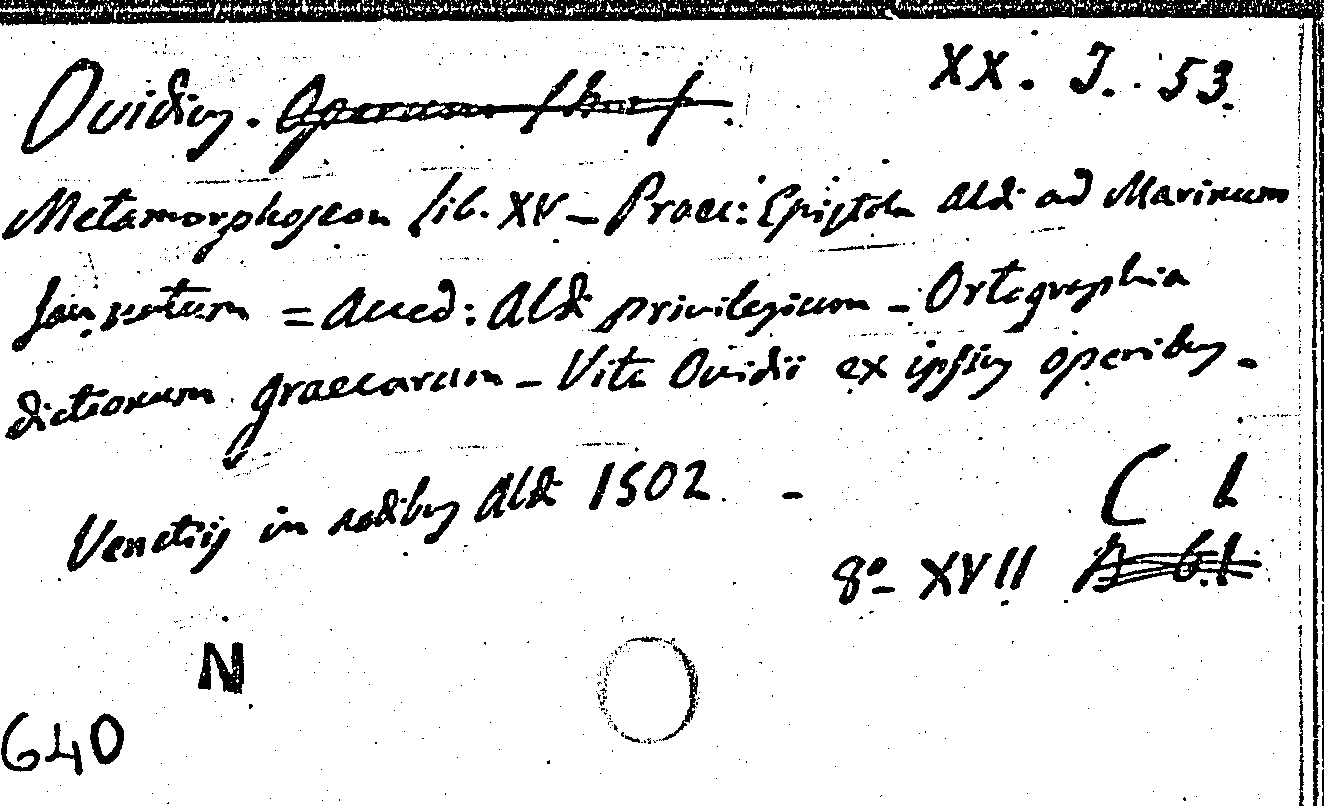 XX. J. 53.
Ovidius.
Metamorphoseon lib. XV – Praec: Epistola Aldi ad Marinum
Sannutum = Acced: Aldi privilegium – Ortographia
dictionum graecarum – Vita Ovidii ex ipsius operibus –
Venetiis in aedibus Aldi 1502 –
C 1
8º– XVII
N
640